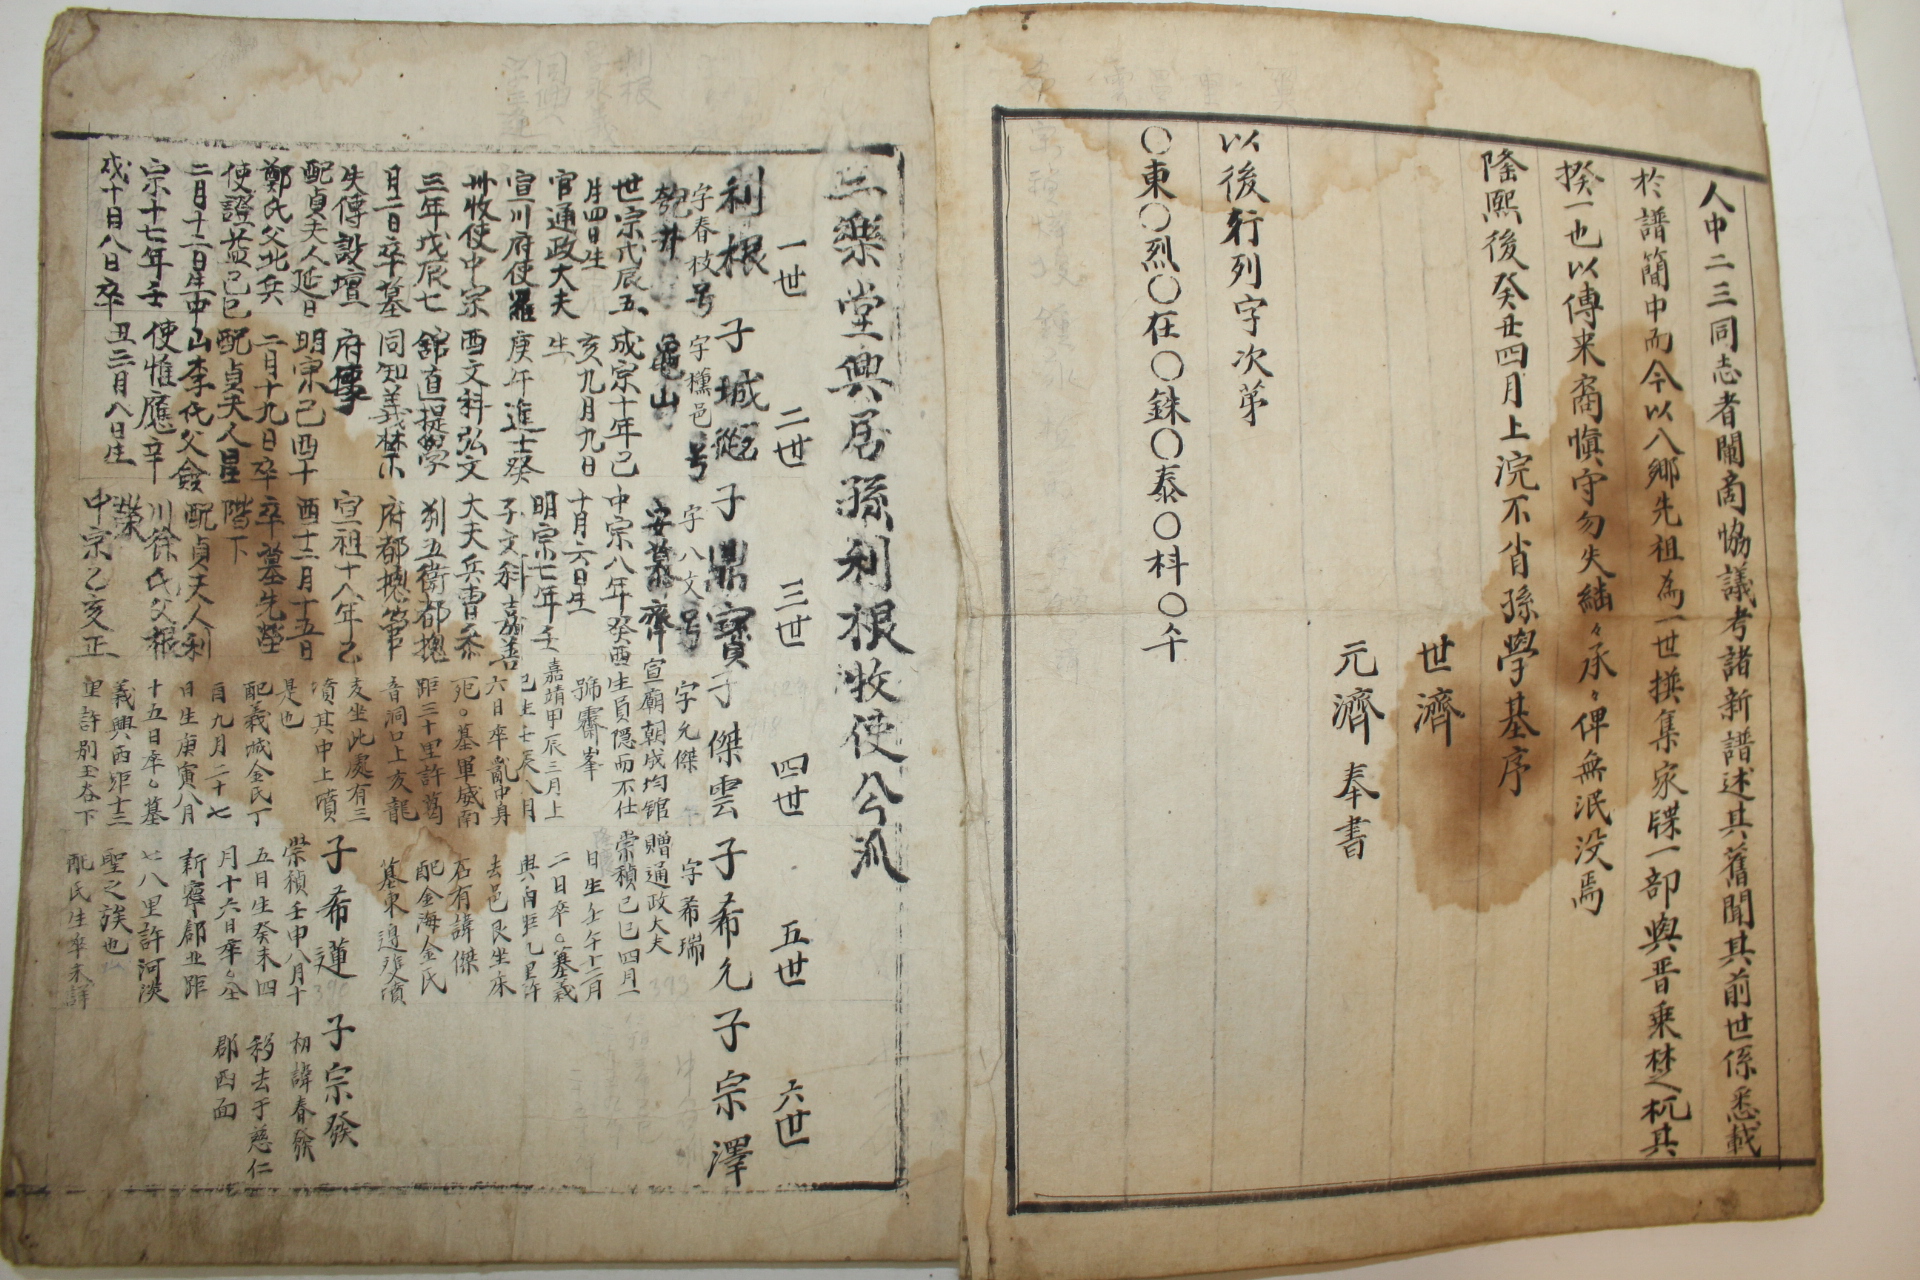 人申二三同志者闡商協議考諸新譜述其舊聞其前世係悉載
於譜簡中而今以八鄉先祖為一世撰集家牒一部與晋乗楚之杌其
揆一也以傳来裔愼守勿失繼々承々俾無泯没焉
隆熙後癸丑四月上浣不肖孫學基序
世濟
元濟 奉書
以後行列字次第
〇東〇烈〇在〇銖〇泰〇枓〇
三樂堂興居孫利根牧使公派
一世 二世 三世 四世 五世 六世
利根 子城 子鼎寳 子傑雲 子希允 子宗澤
字春枝号 字穤邑号 字八文号 字允傑 字希瑞
龜山 安慕齋 宣廟朝成均舘 贈通政大夫
世宗戊辰五 成宗十年己 中宗八年癸酉 生員隠而不仕 崇禎己巳四月一
月四日生 亥九月九日 十月六日生 號霽峯 日生壬午十二月
官通政大夫 生 明宗七年壬 嘉靖甲辰三月上 二日卒。墓義
宣川府使羅 庚午進士癸 子文科嘉善 巳生壬辰八月 興南距九里許
州牧使中宗 酉文科弘文 大夫兵曹叅 六日卒亂中身 去邑艮坐床
三年戊辰七 舘直提學 判五衛都摠 死。墓軍威南 石有諱傑
月二日卒墓 同知義禁 府都摠管 距三十里許葛 配金海金氏
失傳設壇 府傳 宣祖十八年乙 音洞口上友龍 墓東邊
配貞夫人延日 明宗己酉十 酉十二月十五日 亥坐此處有三 子希蓮 子宗發
鄭氏父北兵 二月十九日卒 卒墓先塋 墳其中上墳 崇禎壬申八月十 初諱春發
使證 己巳 配貞夫人星 階下 是也 五日生癸未四 移去于慈仁
二月十二日生中 山李氏父僉 配貞夫人利 配義城金氏丁 月十六日卒 郡西面
宗十七年壬 使惟應辛 川徐氏父報 酉九月二十七 新寧郡北距
戌十月八日卒 丑二月八日生 榮 日生庚寅八月 七八里許河淡
中宗乙亥正 十五日卒。墓 聖之誤也
義興西距十三 配氏生卒未詳
里許別